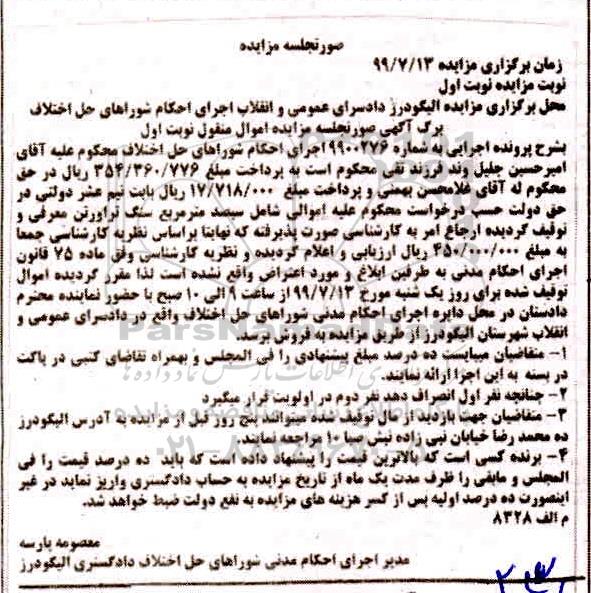 صورتجلسه مزایده
زمان برگزاری مزایده ۹۹/۷/۱۳
نوبت مزایده نوبت اول
محل برگزاری مزایده الیگودرز دادسرای عمومی و انقلاب اجرای احکام شوراهای حل اختلاف
برگ آگهی صورتجلسه مزایده اموال منقول نوبت اول
بشرح پرونده اجرایی به شماره ۹۹۰۰۲۷۶ اجرای احکام شوراهای حل اختلاف محکوم علیه آقای
امیرحسین جلیل وند فرزند تقی محکوم است به پرداخت مبلغ ۳۵۴/۳۶۰/۷۷۶ ریال در حق
محکوم له آقای غلامحسن بهمنی و پرداخت مبلغ ۱۷/۷۱۸/۰۰۰ ریال بابت نیم عشر دولتی در
حق دولت حسب درخواست محکوم علیه اموالی شامل سیصد مترمربع سنگ تراورتن معرفی و
توقیف گردیده ارجاع امر به کارشناسی صورت پذیرفته که نهایتا براساس نظریه کارشناسی جمعا
به مبلغ ۴۵۰/۰۰۰/۰۰۰ ریال ارزیابی و اعلام گردیده و نظریه کارشناسی وفق ماده ۷۵ قانون
اجرای احکام مدنی به طرفین ابلاغ و مورد اعتراض واقع نشده است لذا مقرر گردیده اموال
توقیف شده برای روز یک شنبه مورخ ۹۹/۷/۱۳ از ساعت ۹ الی ۱۰ صبح با حضور نماینده محترم
دادستان در محل دایره اجرای احکام مدنی شوراهای حل اختلاف واقع در دادسرای عمومی و
انقلاب شهرستان الیگودرز از طریق مزایده به فروش برسد.
۱- متقاضیان میبایست ده درصد مبلغ پیشنهادی را فی المجلس و بهمراه تقاضای کتبی در پاکت
در بسته به این اجرا ارائه نمایند.
۲- چنانچه نفر اول انصراف دهد نفر دوم در اولویت قرار میگیرد
۳- متقاضیان جهت بازدید از مال توقیف شده میتوانند پنج روز قبل از مزایده به آدرس الیگودرز
ده محمد رضا خیابان نبی زاده نبش صبا ۱۰ مراجعه نمایند.
۴- برنده کسی است که بالاترین قیمت را پیشنهاد داده است که باید ده درصد قیمت را فی
المجلس و مابقی را ظرف مدت یک ماه از تاریخ مزایده به حساب دادگستری واریز نماید در غیر
اینصورت ده درصد اولیه پس از کسر هزینه های مزایده به نفع دولت ضبط خواهد شد.
م الف ۸۳۲۸
معصومه پارسه
مدیر اجرای احکام مدنی شوراهای حل اختلاف دادگستری الیگودرز